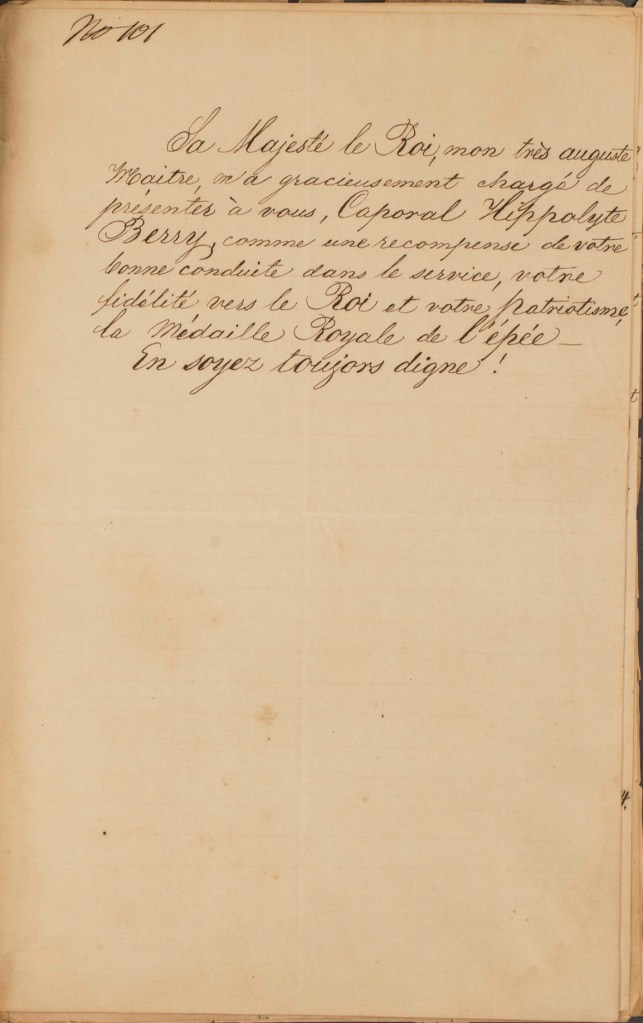 No 101
Sa Majesté le Roi, mon très auguste
Maitre, m'a gracieusement chargé de
présenter à vous, Caporal Hippolyte
Berry, comme une recompense de votre
bonne conduite dans le service, votre
fidélité vers le Roi et votre patriotisme,
la Médaille Royale de l'épée_
En soyez toujors digne !
t
4.